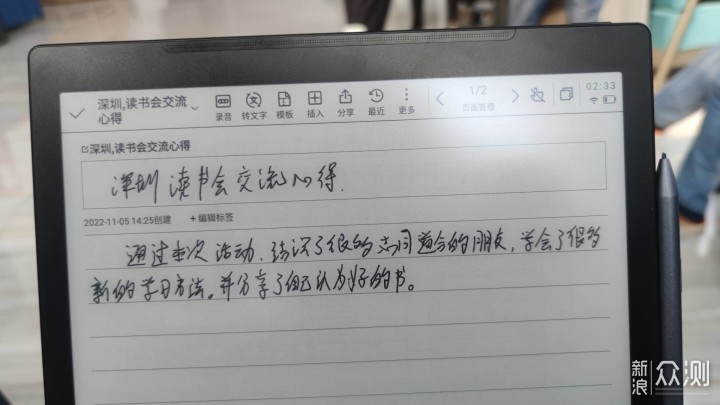 深圳,读书会交流
心得
录音 转文字 模板 插入 分享 最近 更多
1/2
页面管理
02:33
深圳,读书会交流心得
深圳读书会交流心得.
2022-11-05 14:25创建 +编辑标签
通过本次活动,结识了很多志同道合的朋友,学会了很多
新的学习方法。并分享了自己认为好的书。
新浪 众测